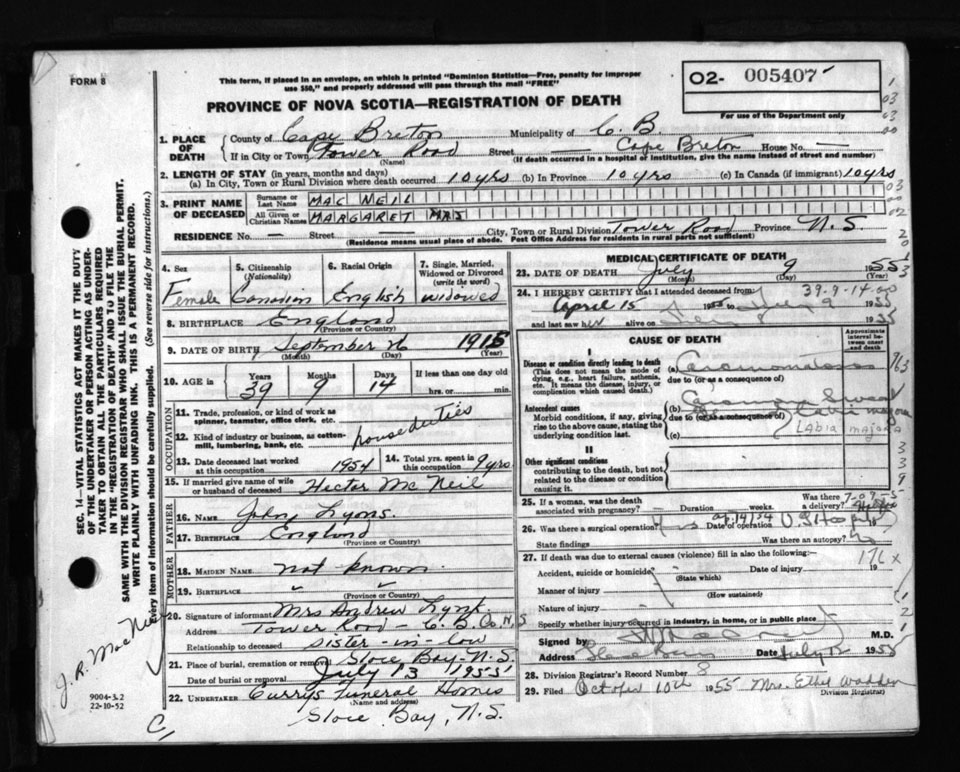 FORM 8
This form, if placed in an envelope, on which is printed "Dominion Statistics—Free, penalty for improper
use $50," and properly addressed will pass through the mail "FREE"
O2- 005407
For use of the Department only
PROVINCE OF NOVA SCOTIA—REGISTRATION OF DEATH
1. PLACE OF DEATH
County of Cape Breton Municipality of C. B.
If in City or Town Tower Road Street — Cape Breton House No. —
(Name) (If death occurred in a hospital or institution, give the name instead of street and number)
2. LENGTH OF STAY (in years, months and days)
(a) In City, Town or Rural Division where death occurred 10 yrs (b) In Province 10 yrs (c) In Canada (if immigrant) 10 yrs
3. PRINT NAME OF DECEASED
Surname or Last Name MAC NEIL
All Given or Christian Names MARGARET MRS
RESIDENCE No. — Street — City, Town or Rural Division Tower Road Province N.S.
(Residence means usual place of abode. Post Office Address for residents in rural parts not sufficient)
4. Sex Female
5. Citizenship (Nationality) Canadian
6. Racial Origin English
7. Single, Married, Widowed or Divorced (write the word) widowed
8. BIRTHPLACE England
(Province or Country)
9. DATE OF BIRTH September 26 1915
(Month) (Day) (Year)
10. AGE in Years 39 Months 9 Days 14 If less than one day
hrs. or min.
OCCUPATION
11. Trade, profession, or kind of work as
spinner, teamster, office clerk, etc.
12. Kind of industry or business, as cotton-
mill, lumbering, bank, etc.
house duties
13. Date deceased last worked
at this occupation 1954
14. Total yrs. spent in
this occupation 9 yrs
15. If married give name of wife
or husband of deceased Hector Mc Neil
FATHER
16. Name John Lyons
17. Birthplace England
(Province or Country)
MOTHER
18. Maiden Name not known
19. Birthplace " "
(Province or Country)
20. Signature of informant Mrs Andrew Lynk
Address Tower Road - C. B. Co. N.S
Relationship to deceased sister-in-law
21. Place of burial, cremation or removal Glace Bay N.S.
Date of burial or removal July 13 1955
22. UNDERTAKER Currys Funeral Homes
(Name and address)
Glace Bay, N.S.
MEDICAL CERTIFICATE OF DEATH
23. DATE OF DEATH July 9 1955
(Month) (Day)
24. I HEREBY CERTIFY that I attended deceased from
39-9-14-00
April 15 1955 to July 9 1955
and last saw her alive on 1955
CAUSE OF DEATH
Approximate interval between onset and death
I
Disease or condition directly leading to death
(This does not mean the mode of
dying, e.g., heart failure, asthenia,
etc. It means the disease, injury, or
complication which caused death)
(a) Carcinomatosis
due to (or as a consequence of)
Antecedent causes
Morbid conditions, if any, giving
rise to the above cause, stating the
underlying condition last.
(b) Carcinoma
due to (or as a consequence of) Labia majora
(c) Labia majora
II
Other significant conditions
contributing to the death, but not
related to the disease or condition
causing it.
25. If a woman, was the death
associated with pregnancy? Duration weeks. Was there a delivery?
26. Was there a surgical operation? Date of operation
State findings Was there an autopsy? No
27. If death was due to external causes (violence) fill in also the following:—
176 x
Accident, suicide or homicide? Date of injury 19
(State which)
Manner of injury
(How sustained)
Nature of injury
Specify whether injury occurred in industry, in home, or in public place
Signed by M.D.
Address Glace Bay Date July 12 1955
28. Division Registrar's Record Number 8
29. Filed October 10th 1955 Mrs. Ethel Wadden
Division Registrar)
SEC. 14—VITAL STATISTICS ACT MAKES IT THE DUTY
OF THE UNDERTAKER OR PERSON ACTING AS UNDER-
TAKER TO OBTAIN ALL THE PARTICULARS REQUIRED
IN THE "REGISTRATION OF DEATH" AND TO FILE THE
SAME WITH THE DIVISION REGISTRAR WHO SHALL ISSUE THE BURIAL PERMIT.
WRITE PLAINLY WITH UNFADING INK. THIS IS A PERMANENT RECORD.
Every item of Information should be carefully supplied. (See reverse side for instructions.)
J. R. MacNeil
9004-3.2
22-10-52